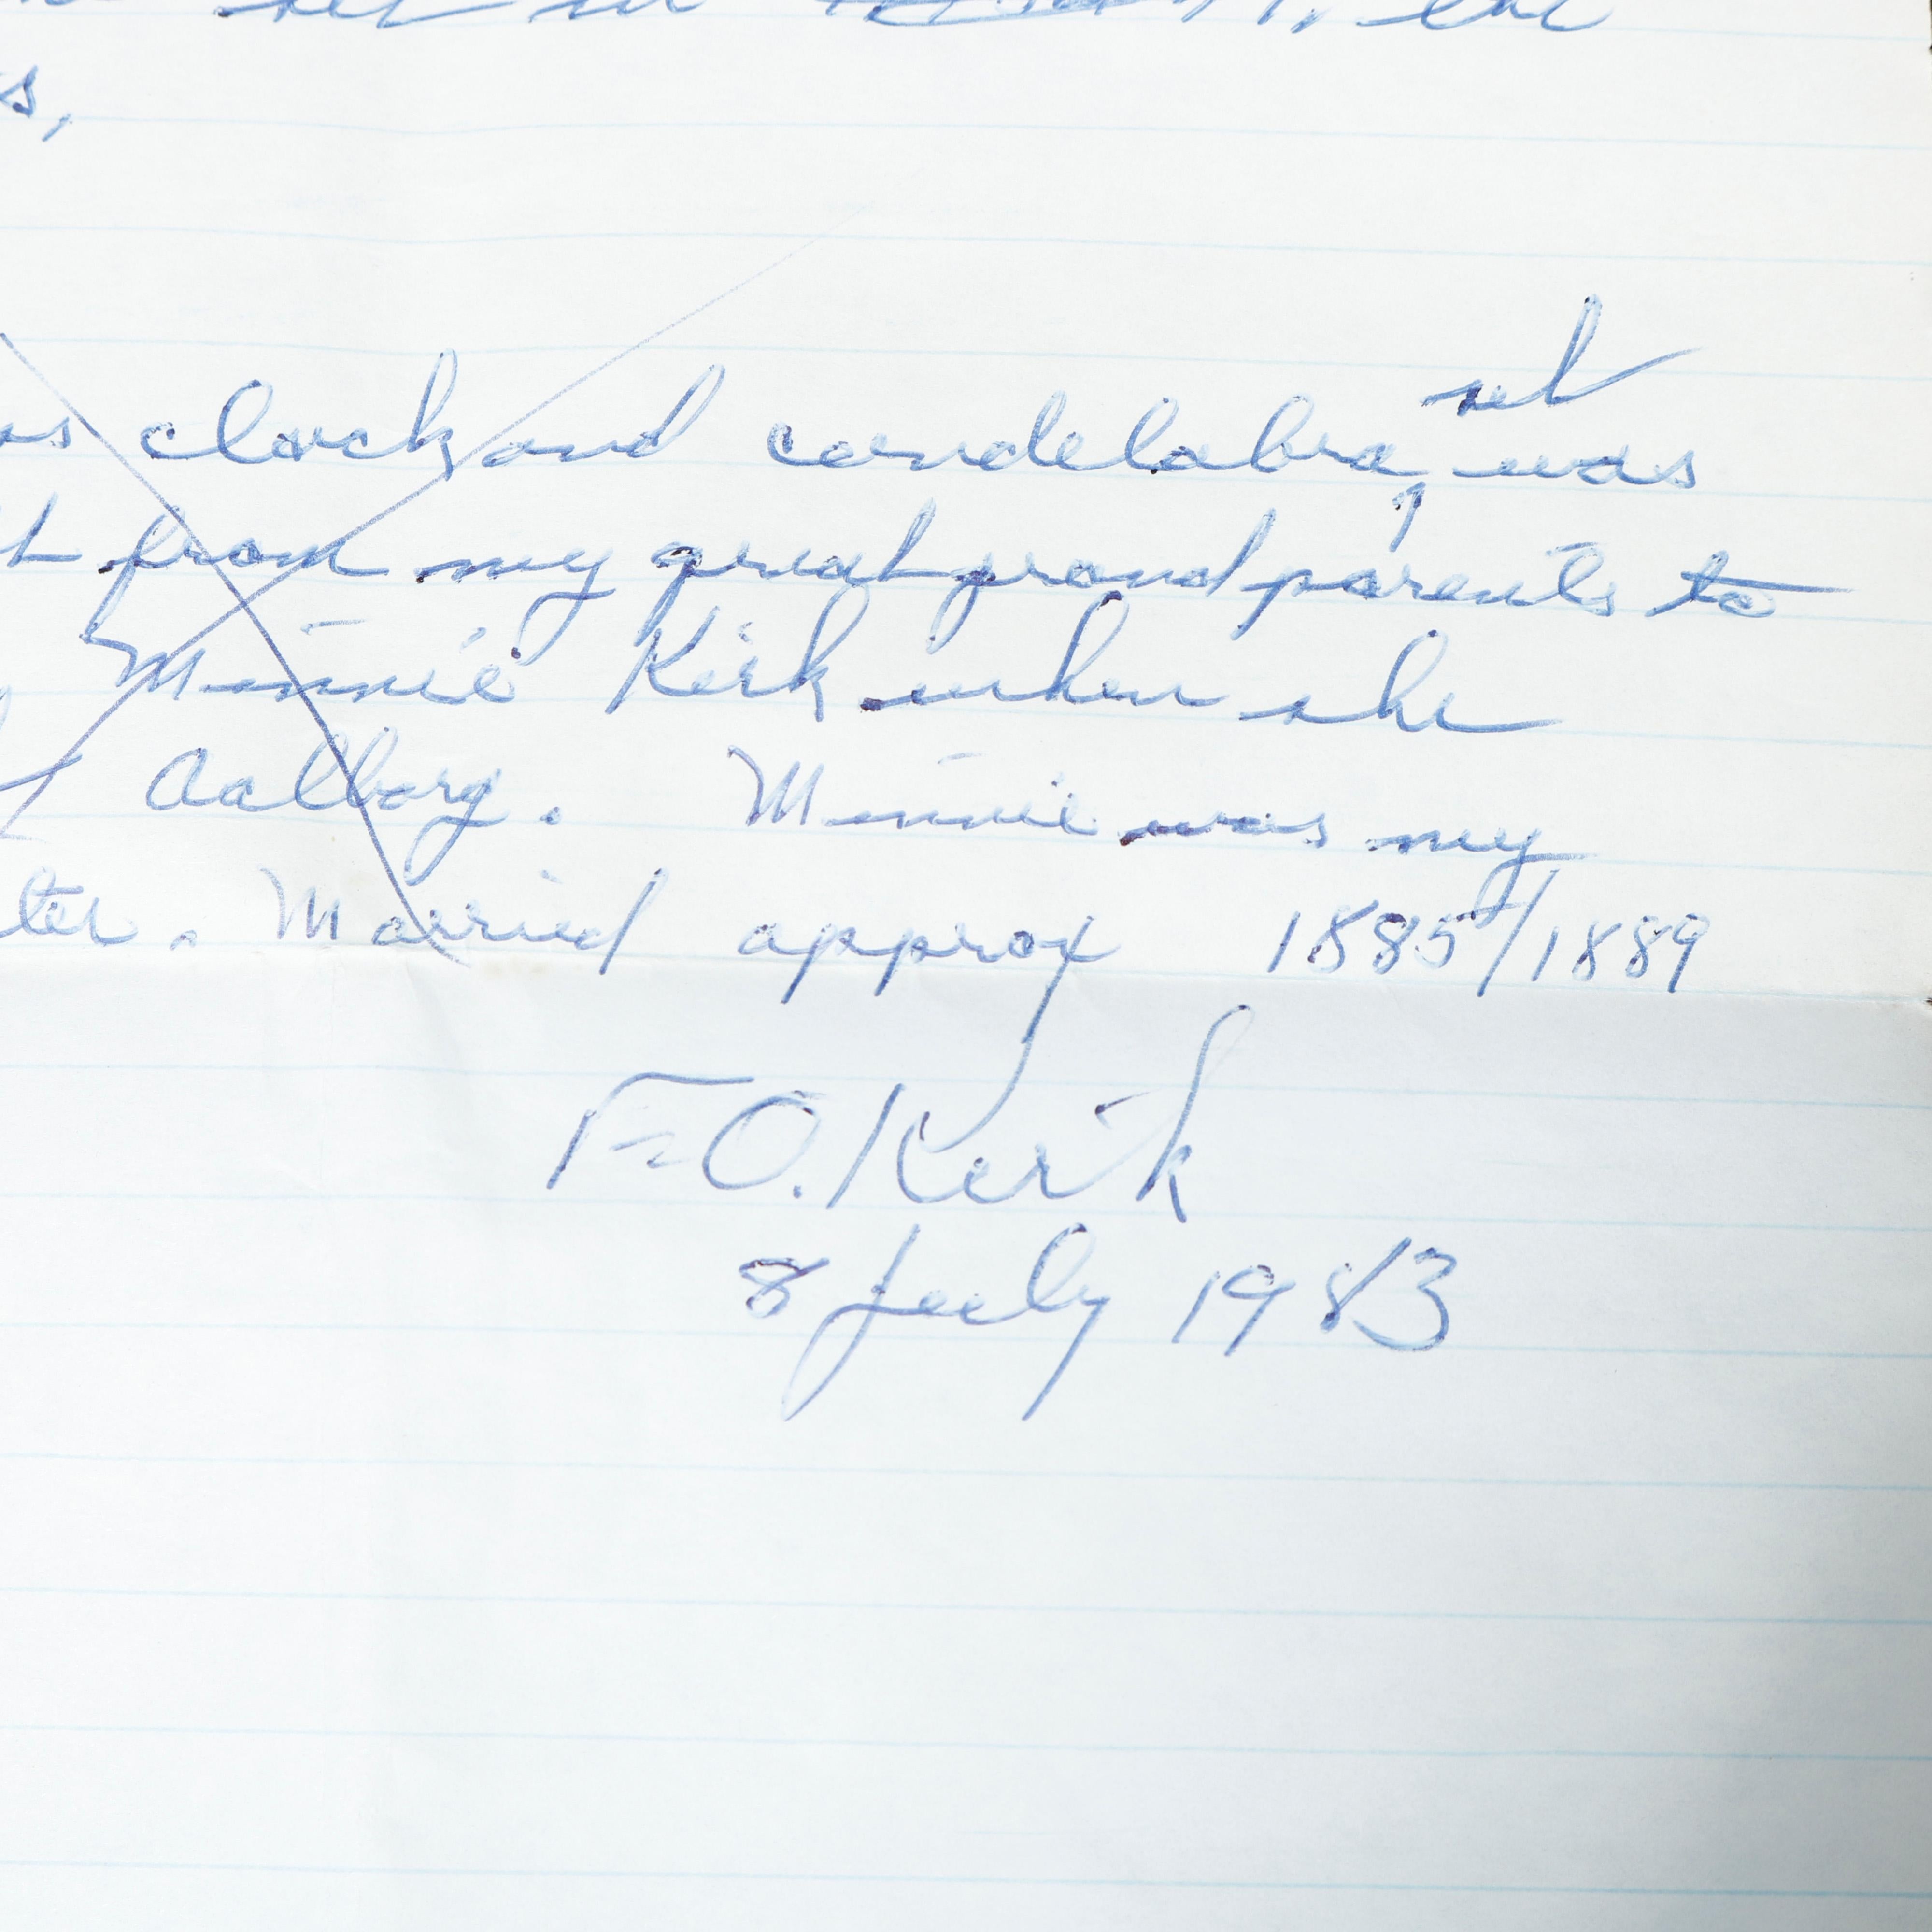 set in the
s,
set
clock and candelabra was
from my great grandparents to
Minnie Kirk when she
Aalborg. Minnie was my
ter. Married approx 1885/1889
F. O. Kirk
8 July 1983